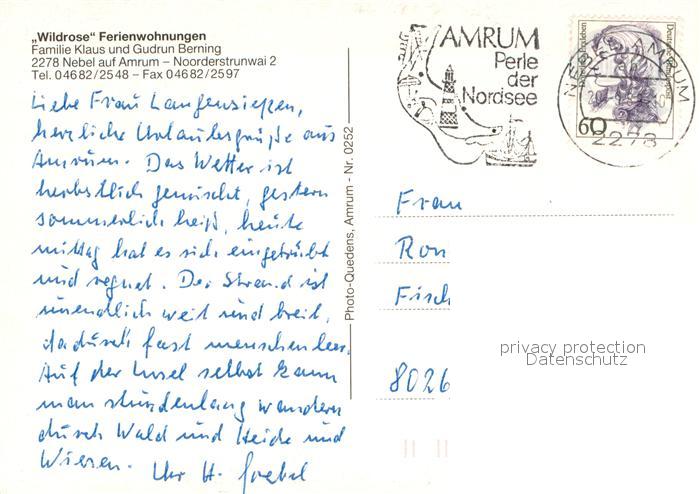 „Wildrose“ Ferienwohnungen
Familie Klaus und Gudrun Berning
2278 Nebel auf Amrum – Noorderstrunwai 2
Tel. 04682/2548 – Fax 04682/2597
Liebe Frau Langensiepen,
herzliche Urlaubsgrüße aus
Amrum. Das Wetter ist
herbstlich gemischt, gestern
sommerlich heiß, heute
mittag hat es sich eingetrübt
und regnet. Der Strand ist
unendlich weit und breit,
dadurch fast menschenleer.
Auf der Insel selbst kann
man stundenlang wandern
durch Wald und Heide und
Wiesen. Ihr H. Goebel
Photo-Quedens, Amrum - Nr. 0252
AMRUM
Perle
der
Nordsee
60
NEBEL, AMRUM
2278
Frau
Ron
Fisch
8026
privacy protection
Datenschutz